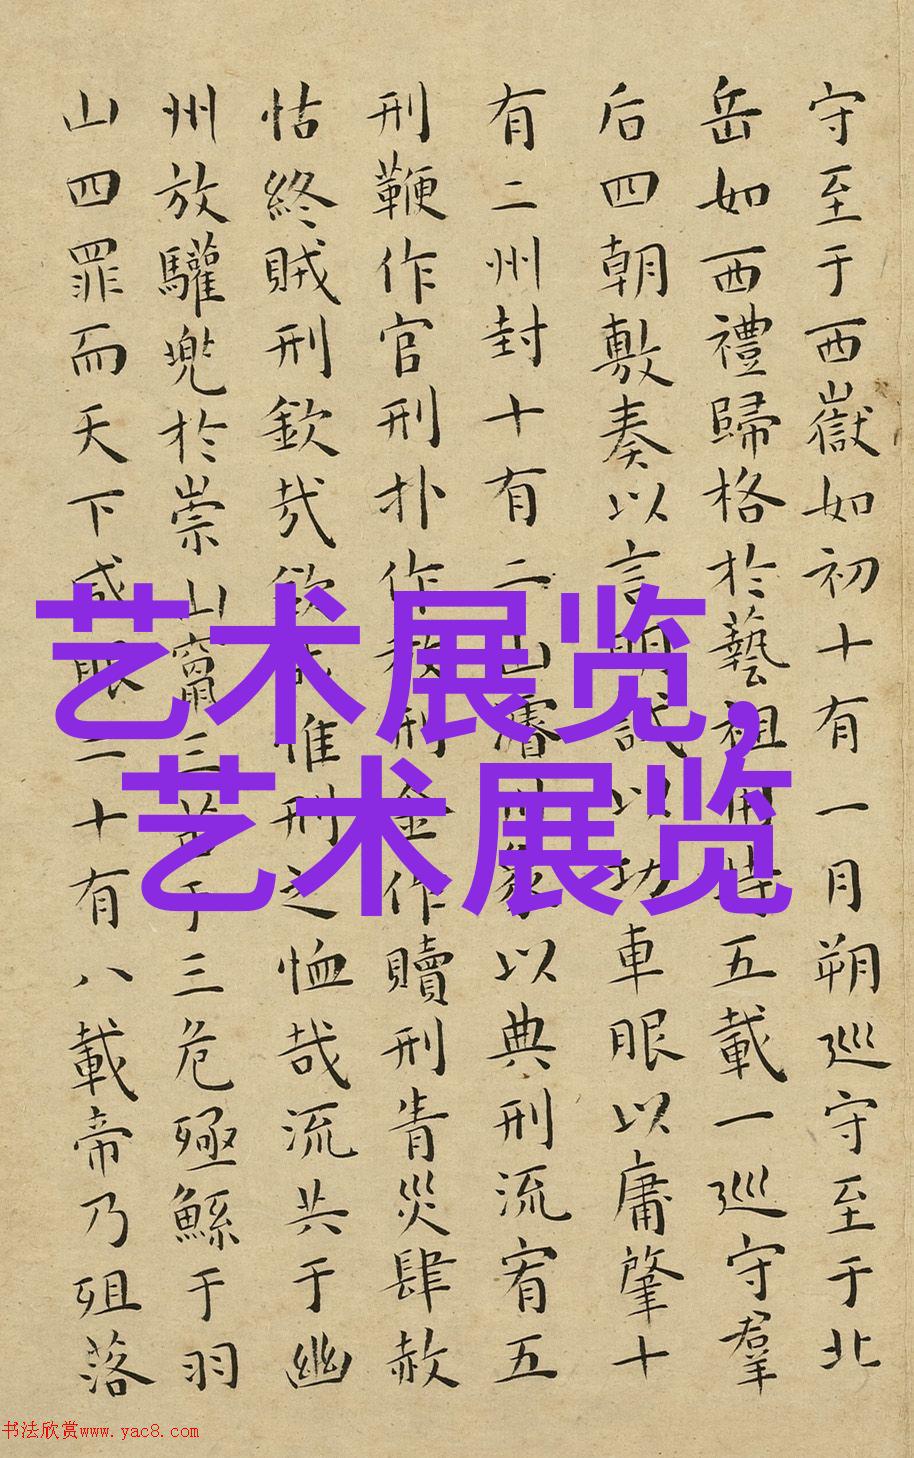 守至于西嶽如初十有一月朔巡守至于北
岳如西禮歸格於藝祖用特五載一巡守羣
后四朝敷奏以言明試以功車服以庸肇十
有二州封十有二山濬川象以典刑流宥五
刑鞭作官刑扑作教刑金作贖刑眚災肆赦
怙終賊刑欽哉欽哉惟刑之恤哉流共于幽
州放驩兜於崇山竄三苗于三危殛鯀于羽
山四罪而天下咸服二十有八載帝乃殂落
艺术展览,
艺术展览
书法欣赏www.yac8.com